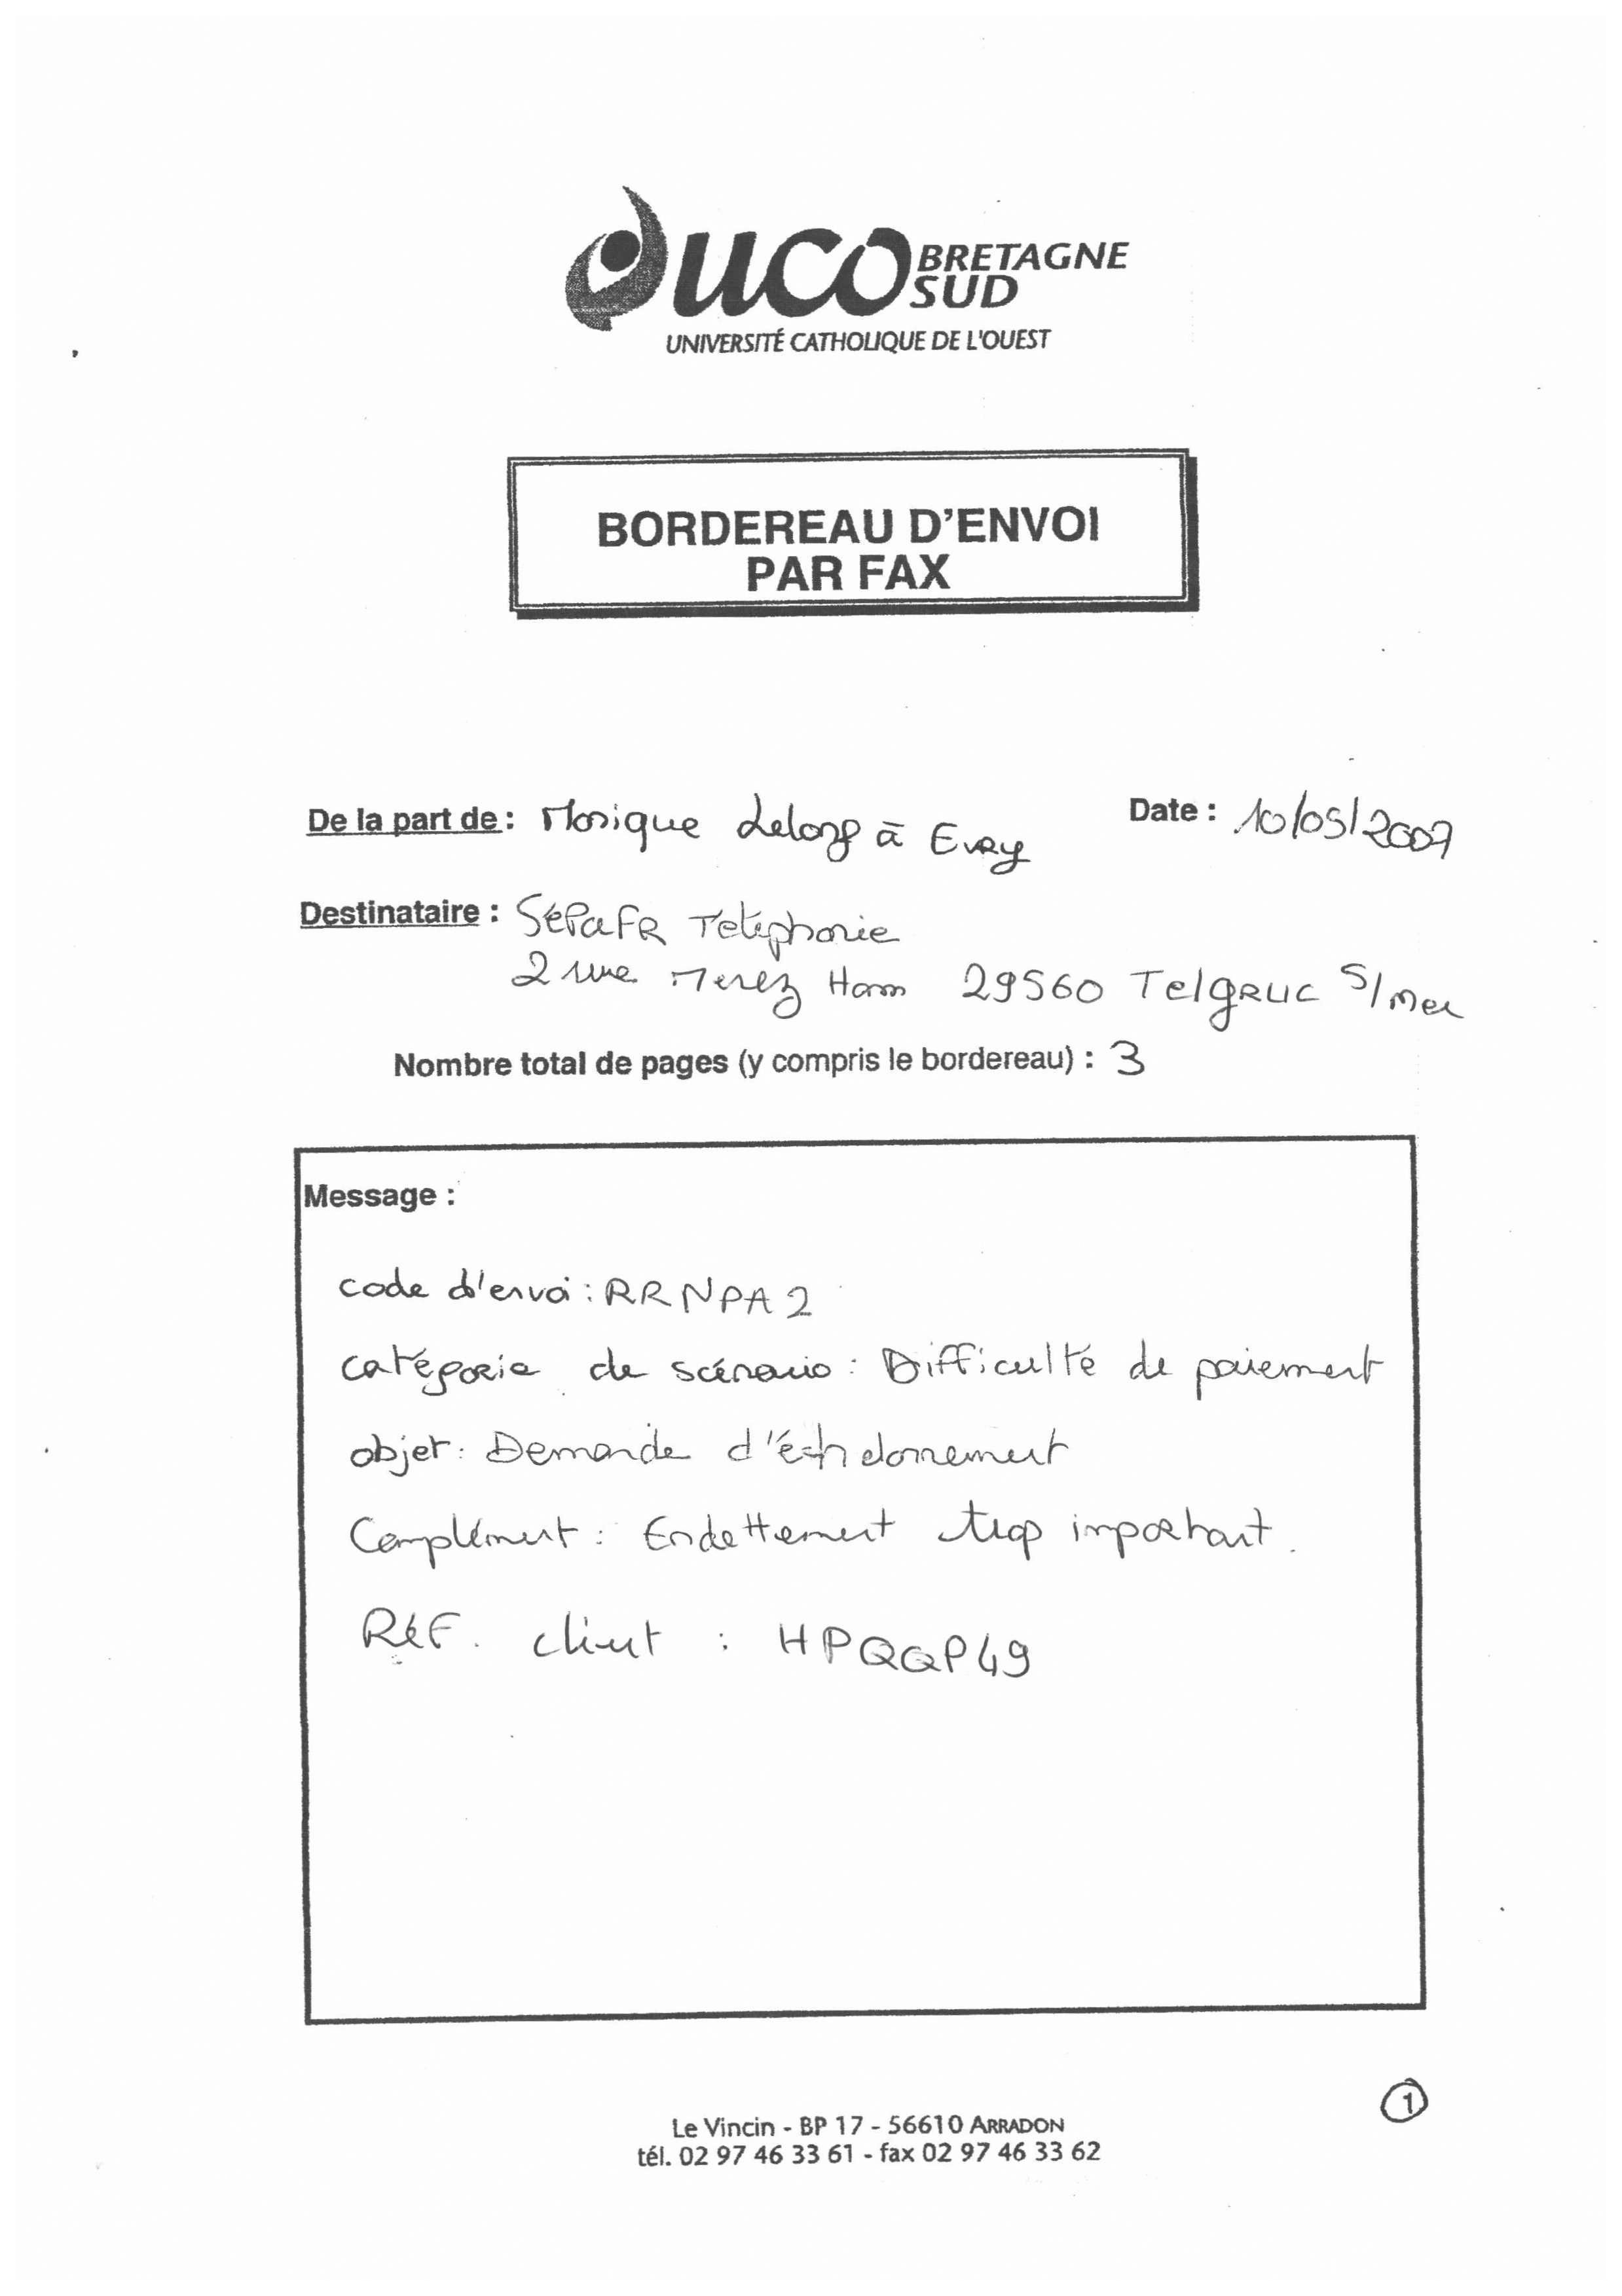 uco BRETAGNE
SUD
UNIVERSITÉ CATHOLIQUE DE L'OUEST
BORDEREAU D'ENVOI
PAR FAX
De la part de : Monique Lelong à Evry Date : 10/05/2007
Destinataire : SEPaFR Teléphonie
2 rue Merez Ham 29560 Telgruc S/mer
Nombre total de pages (y compris le bordereau) : 3
Message :
code d'envoi : RRNPA2
catégorie de scénario : Difficulté de paiement
objet : Demande d'échelonnement
Complément : Endettement trop important.
Réf. client : HPQQP49
1
Le Vincin - BP 17 - 56610 ARRADON
tél. 02 97 46 33 61 - fax 02 97 46 33 62